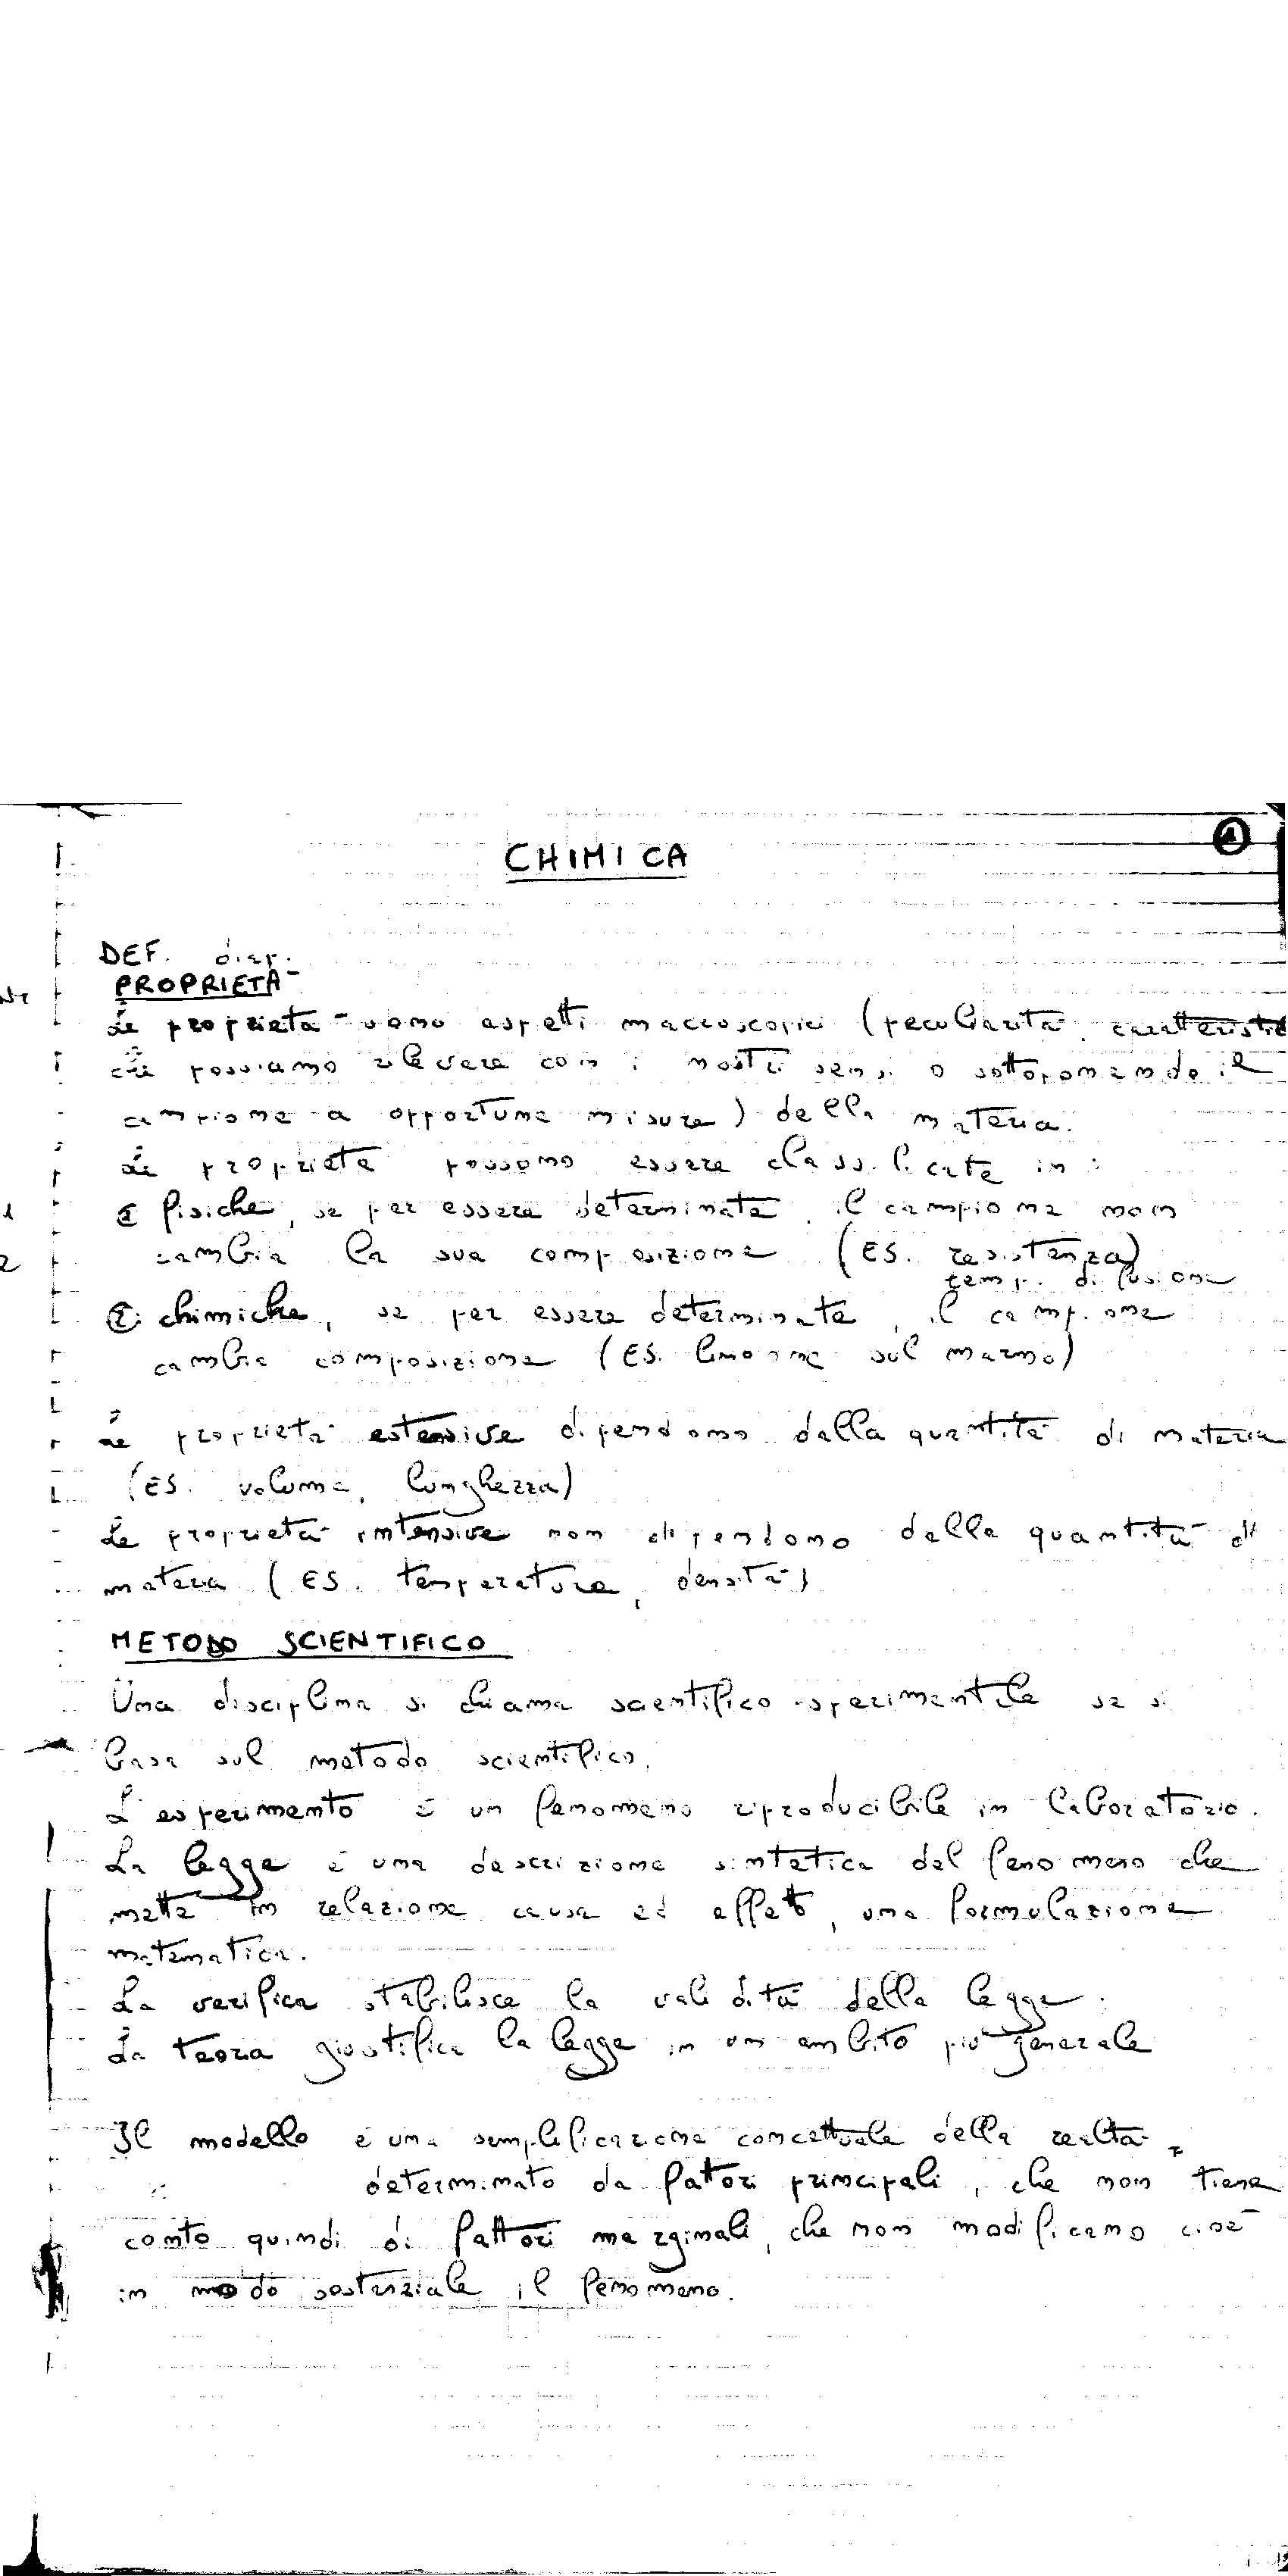 CHIMICA
1
DEF. disp.
PROPRIETÀ
Le proprietà sono aspetti macroscopici (peculiarità, caratteristi
che possiamo rilevare con i nostri sensi o sottoponendo il
campione a opportune misure) della materia.
Le proprietà possono essere classificate in:
1 fisiche, se per essere determinate, il campione non
cambia la sua composizione (ES. resistenza)
temp. di fusione
2 chimiche, se per essere determinate, il campione
cambia composizione (ES. limone sul marmo)
Le proprietà estensive dipendono dalla quantità di materia
(ES. volume, lunghezza)
Le proprietà intensive non dipendono dalla quantità di
materia (ES. temperatura, densità)
METODO SCIENTIFICO
Una disciplina si chiama scientifico-sperimentale se si
basa sul metodo scientifico.
L'esperimento è un fenomeno riproducibile in laboratorio.
La legge è una descrizione sintetica del fenomeno che
mette in relazione causa ed effetto, una formulazione
matematica.
La verifica stabilisce la validità della legge.
La teoria giustifica la legge in un ambito più generale
Il modello è una semplificazione concettuale della realtà,
determinato da fattori principali, che non tiene
conto quindi di fattori marginali, che non modificano cioè
in modo sostanziale il fenomeno.